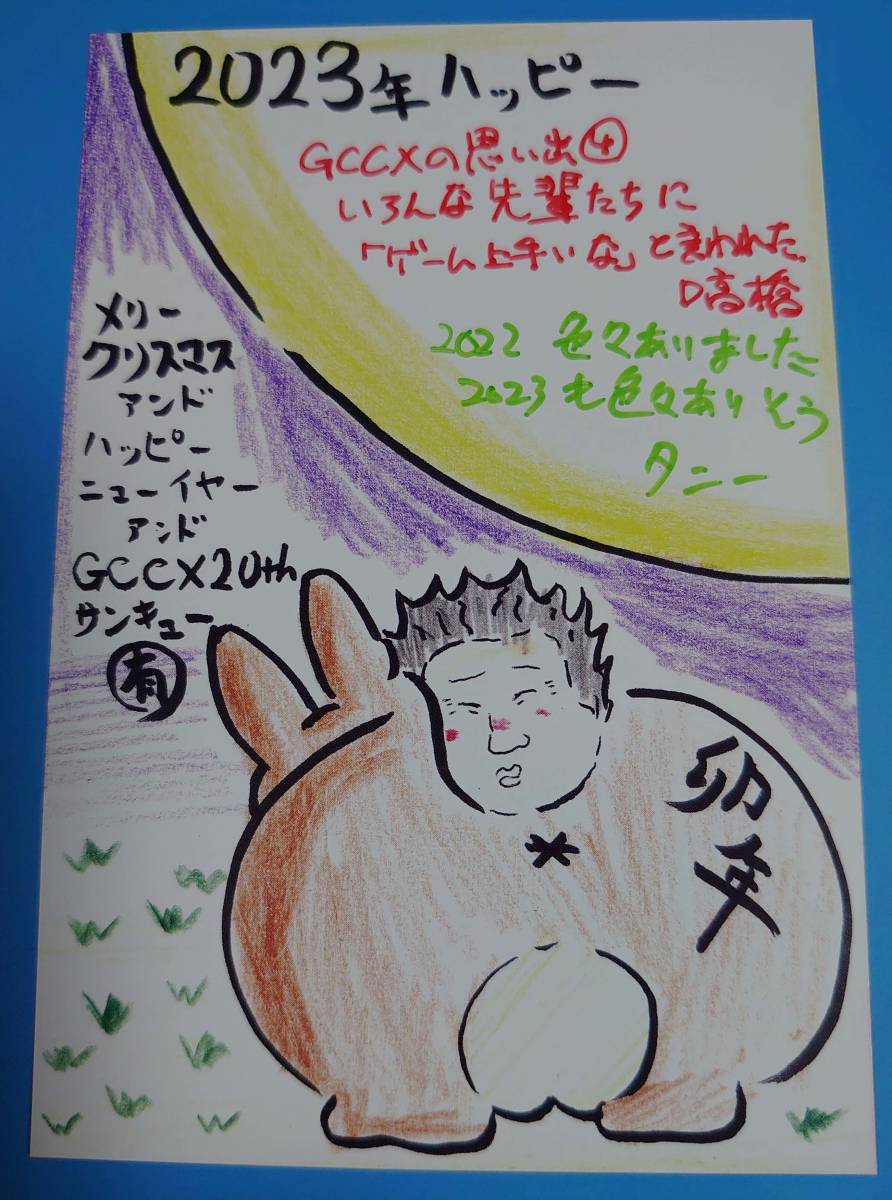 2023年ハッピー
GCCXの思い出④
いろんな先輩たちに
「ゲーム上手いな」と言われた。
D高橋
2022 色々ありました
2023も色々ありそう
タニー
メリー
クリスマス
アンド
ハッピー
ニューイヤー
アンド
GCCX20th
サンキュー
有
卯年